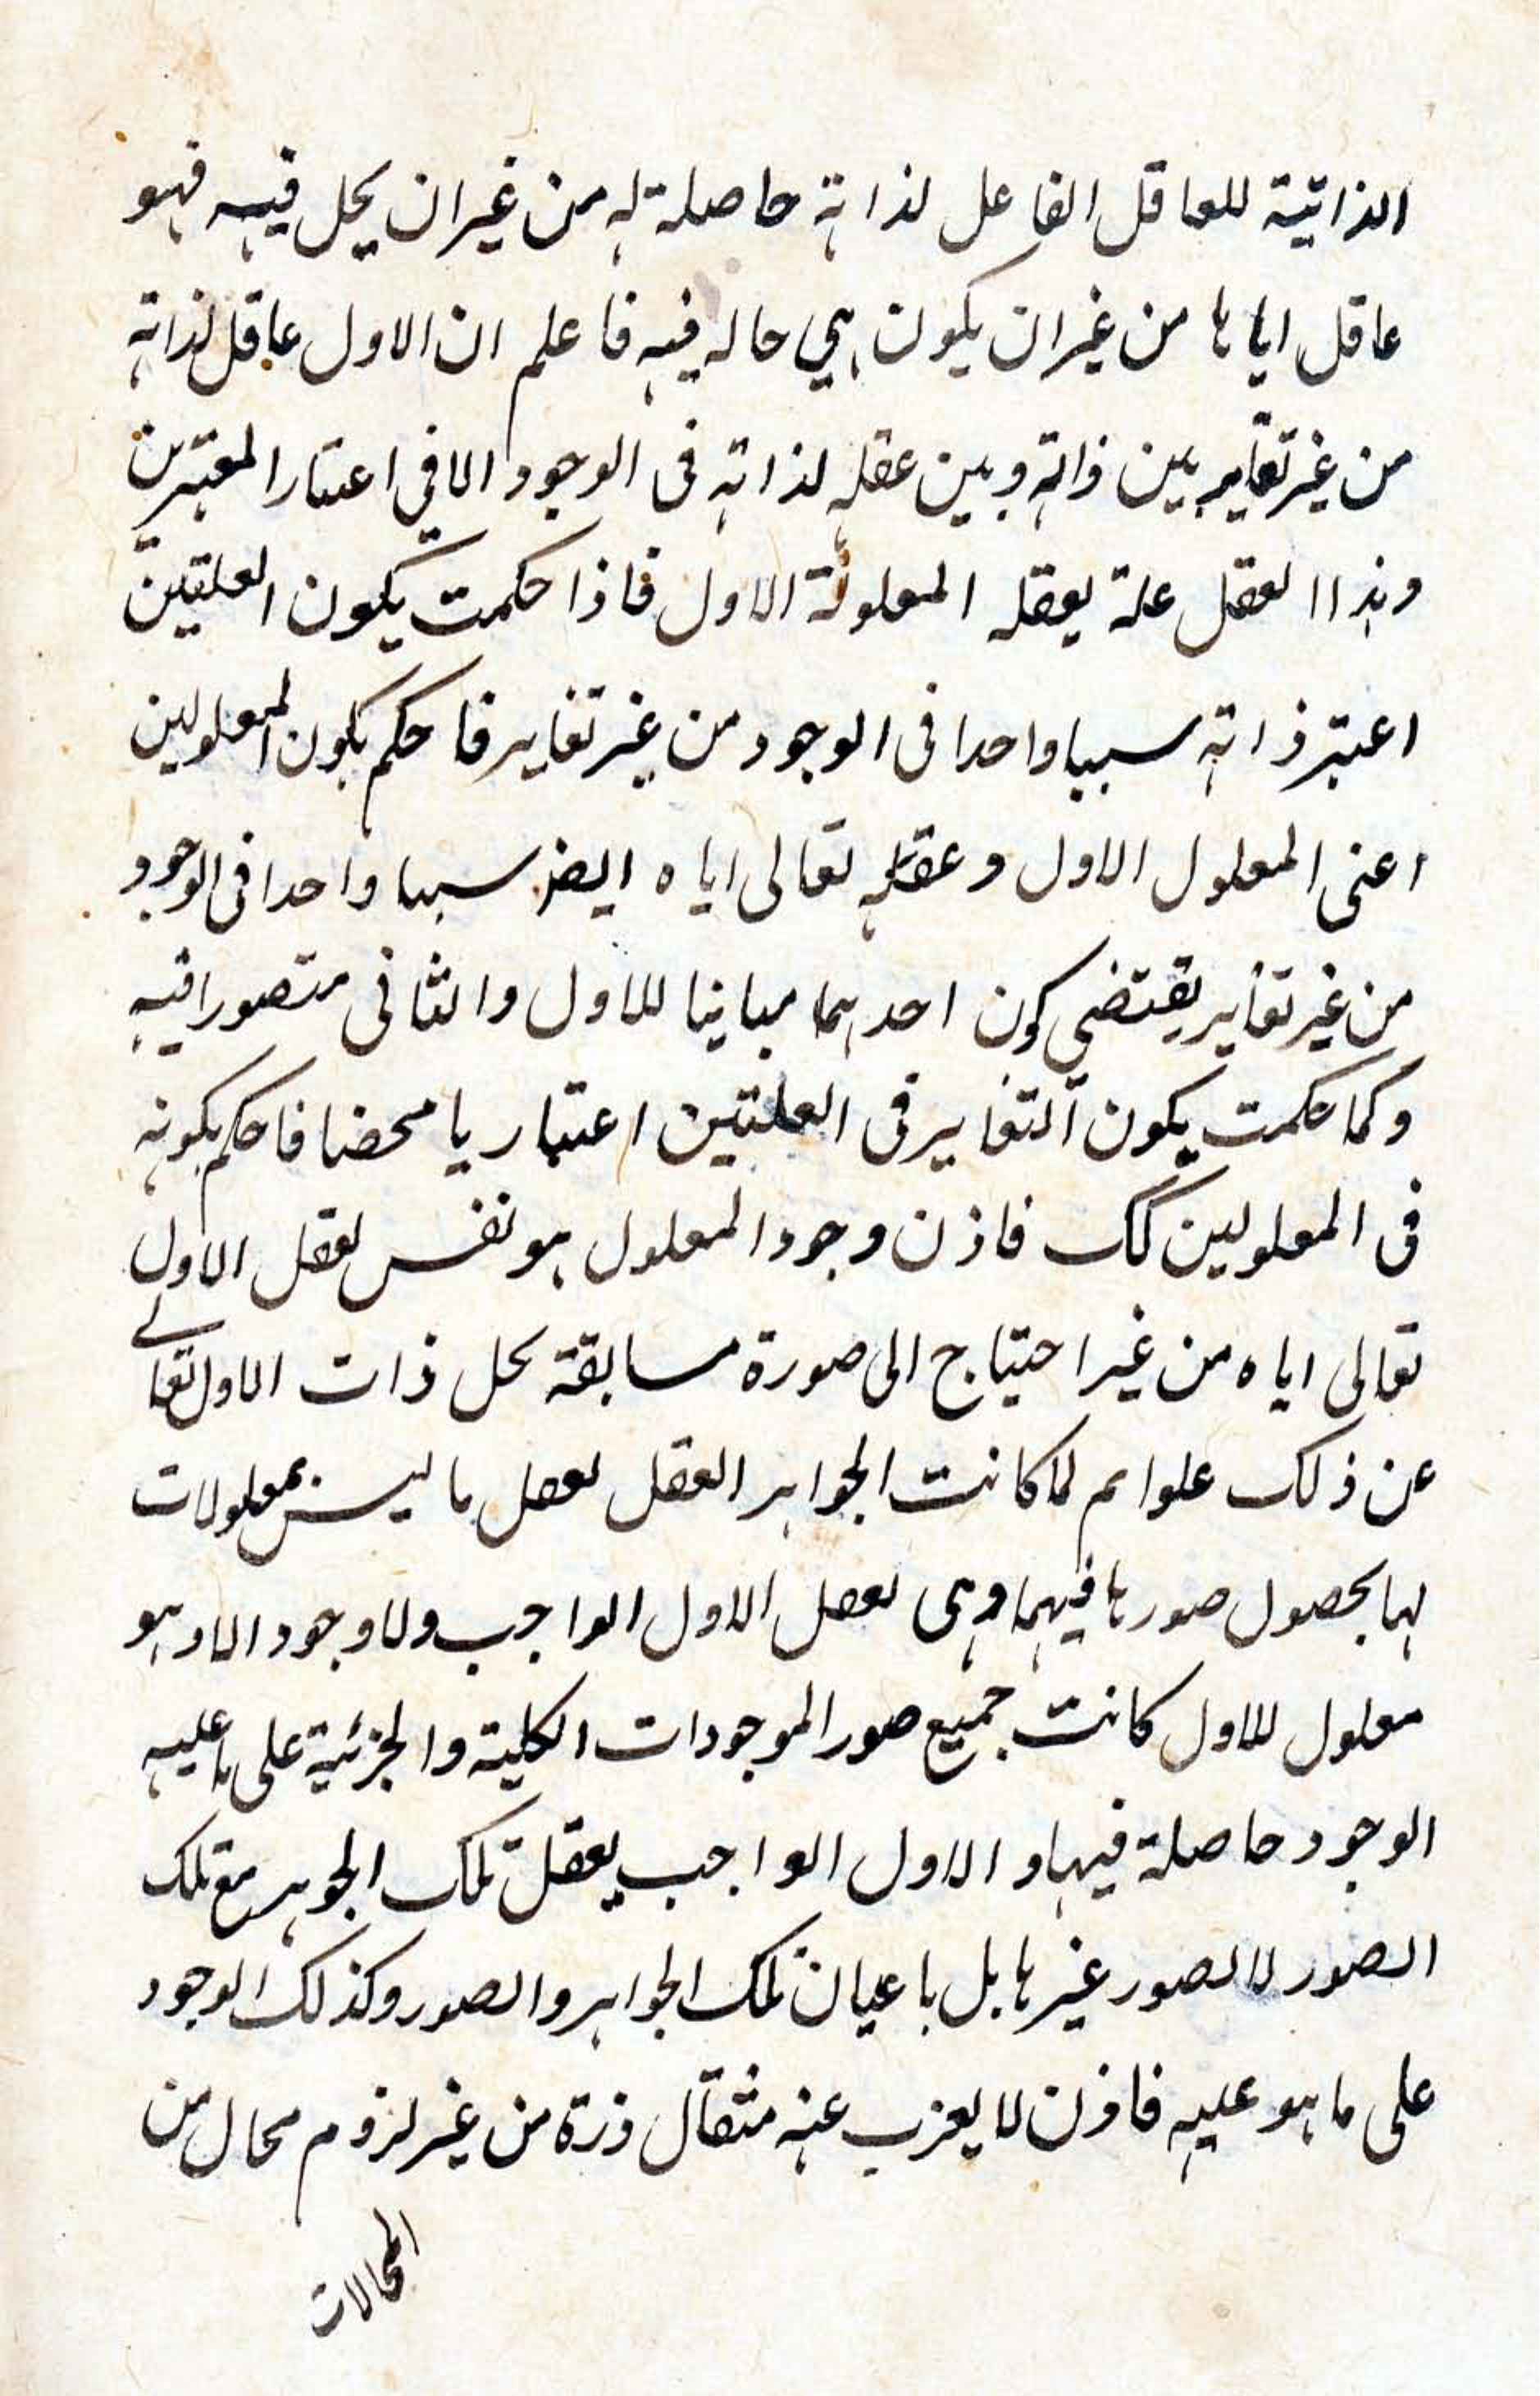 الذاتية للعاقل الفاعل لذاته حاصلة له من غير ان يحل فيه فهو
عاقل اياها من غير ان يكون هي حاله فيه فاعلم ان الاول عاقل لذاته
من غير تغاير بين ذاته وبين عقله لذاته فى الوجود الا في اعتبار المعتبرين
وهذا العقل علة يعقله المعلولة الاول فاذا حكمت يكون العلتين
اعتبر ذاته سببا واحدا فى الوجود من غير تغاير فاحكم بكون المعلولين
اعنى المعلول الاول وعقله تعالى اياه ايضا سببا واحدا فى الوجود
من غير تغاير يقتضى كون احدهما مباينا للاول والثانى متصورا فيه
وكما حكمت يكون التغاير فى العلتين اعتباريا محضا فاحكم بكونه
فى المعلولين كك فاذن وجود المعلول هو نفس تعقل الاول
تعالى اياه من غير احتياج الى صورة مسابقة تحل ذات الاول تعالى
عن ذلك علوا ثم لما كانت الجواهر العقل تعقل ما ليس بمعلولات
لها بحصول صورها فيهما وهى تعقل الاول الواجب ولا وجود الا وهو
معلول للاول كانت جميع صور الموجودات الكلية والجزئية على ما عليه
الوجود حاصلة فيها و الاول الواجب يعقل تلك الجوهر مع تلك
الصور لا الصور غيرها بل باعيان تلك الجواهر والصور وكذلك الوجود
على ما هو عليه فاذن لا يعزب عنه مثقال ذرة من غير لزوم محال من
المحالات